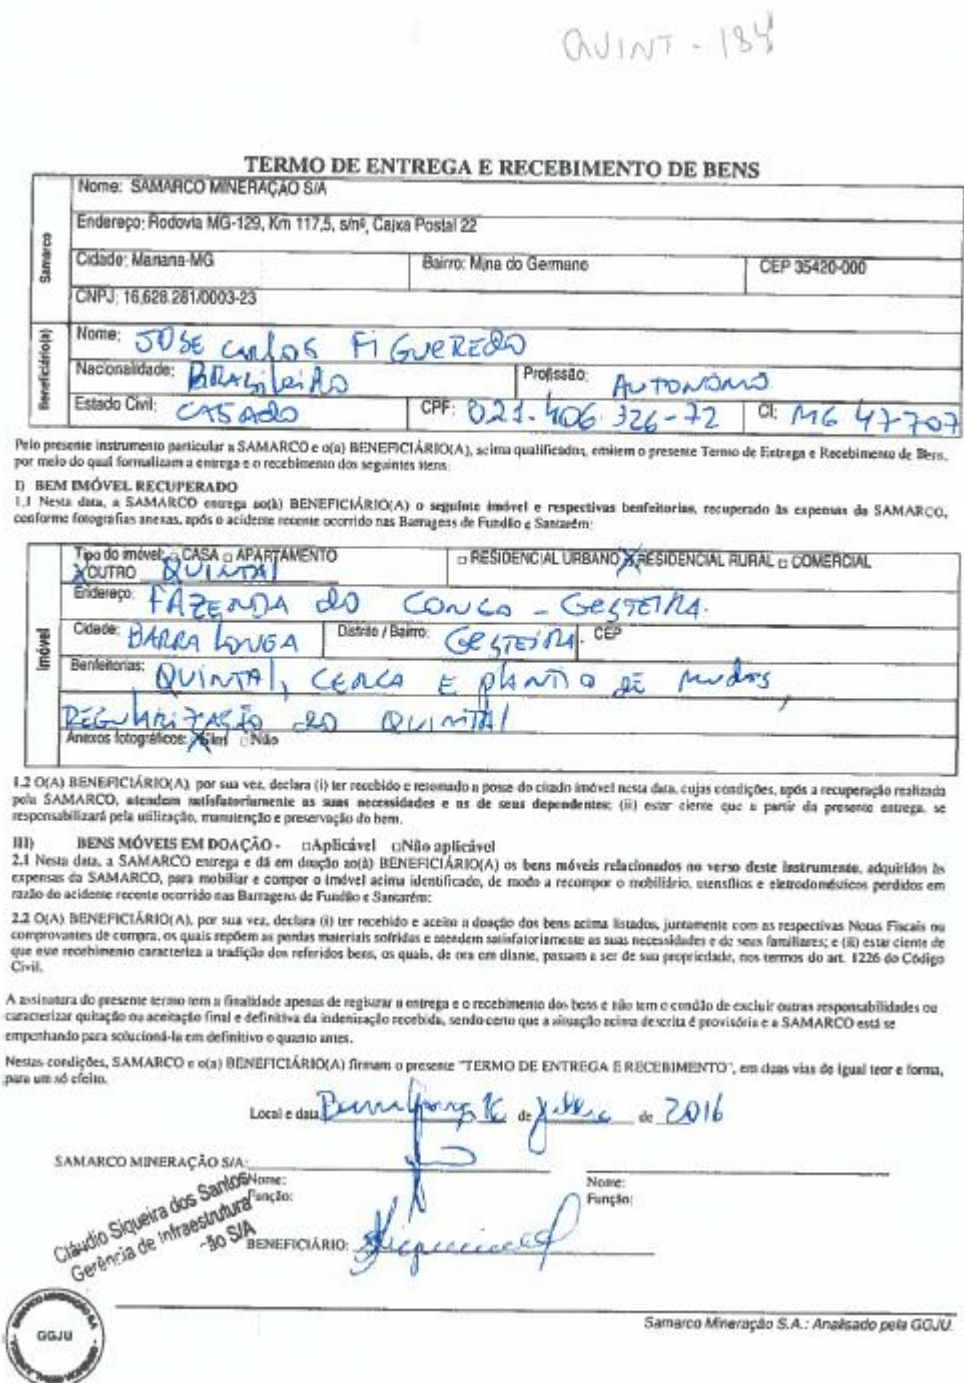 QUINT - 184
TERMO DE ENTREGA E RECEBIMENTO DE BENS
Samarco
Nome: SAMARCO MINERAÇÃO S/A
Endereço: Rodovia MG-129, Km 117,5, s/nº, Caixa Postal 22
Cidade: Mariana-MG Bairro: Mina do Germano CEP 35420-000
CNPJ: 16.628.281/0003-23
Beneficiário(a)
Nome: JOSE CARLOS FIGUEREDO
Nacionalidade: BRASILEIRO Profissão: AUTONOMO
Estado Civil: CASADO CPF: 021.406.326-72 CI: MG 47-707
Pelo presente instrumento particular a SAMARCO e o(a) BENEFICIÁRIO(A), acima qualificados, emitem o presente Termo de Entrega e Recebimento de Bens,
por meio do qual formalizam a entrega e o recebimento dos seguintes itens:
I) BEM IMÓVEL RECUPERADO
1.1 Nesta data, a SAMARCO entrega ao(à) BENEFICIÁRIO(A) o seguinte imóvel e respectivas benfeitorias, recuperado às expensas da SAMARCO,
conforme fotografias anexas, após o acidente recente ocorrido nas Barragens de Fundão e Santarém:
Imóvel
Tipo do imóvel: □ CASA □ APARTAMENTO □ RESIDENCIAL URBANO X RESIDENCIAL RURAL □ COMERCIAL
X OUTRO QUINTAL
Endereço: FAZENDA DO CONGO - GESTEIRA.
Cidade: BARRA LONGA Distrito / Bairro: GESTEIRA. CEP
Benfeitorias: QUINTAL, CERCA E PLANTIO DE MUDAS,
REGULARIZAÇÃO DO QUINTAL
Anexos fotográficos: X Sim □ Não
1.2 O(A) BENEFICIÁRIO(A), por sua vez, declara (i) ter recebido e retomado a posse do citado imóvel nesta data, cujas condições, após a recuperação realizada
pela SAMARCO, atendem satisfatoriamente as suas necessidades e as de seus dependentes; (ii) estar ciente que a partir da presente entrega, se
responsabilizará pela utilização, manutenção e preservação do bem.
III) BENS MÓVEIS EM DOAÇÃO - □Aplicável □Não aplicável
2.1 Nesta data, a SAMARCO entrega e dá em doação ao(à) BENEFICIÁRIO(A) os bens móveis relacionados no verso deste instrumento, adquiridos às
expensas da SAMARCO, para mobiliar e compor o imóvel acima identificado, de modo a recompor o mobiliário, utensílios e eletrodomésticos perdidos em
razão do acidente recente ocorrido nas Barragens de Fundão e Santarém:
2.2 O(A) BENEFICIÁRIO(A), por sua vez, declara (i) ter recebido e aceito a doação dos bens acima listados, juntamente com as respectivas Notas Fiscais ou
comprovantes de compra, os quais repõem as perdas materiais sofridas e atendem satisfatoriamente as suas necessidades e de seus familiares; e (ii) estar ciente de
que esse recebimento caracteriza a tradição dos referidos bens, os quais, de ora em diante, passam a ser de sua propriedade, nos termos do art. 1226 do Código
Civil.
A assinatura do presente termo tem a finalidade apenas de registrar a entrega e o recebimento dos bens e não tem o condão de excluir outras responsabilidades ou
caracterizar quitação ou aceitação final e definitiva da indenização recebida, sendo certo que a situação acima descrita é provisória e a SAMARCO está se
empenhando para solucioná-la em definitivo o quanto antes.
Nestas condições, SAMARCO e o(a) BENEFICIÁRIO(A) firmam o presente "TERMO DE ENTREGA E RECEBIMENTO", em duas vias de igual teor e forma,
para um só efeito.
Local e data Barra Longa, 16 de de 2016
SAMARCO MINERAÇÃO S/A:
Nome: Nome:
Função: Função:
Cláudio Siqueira dos Santos
Gerência de Infraestrutura
-ão S/A
BENEFICIÁRIO:
GGJU
Samarco Mineração S.A.: Analisado pela GGJU.